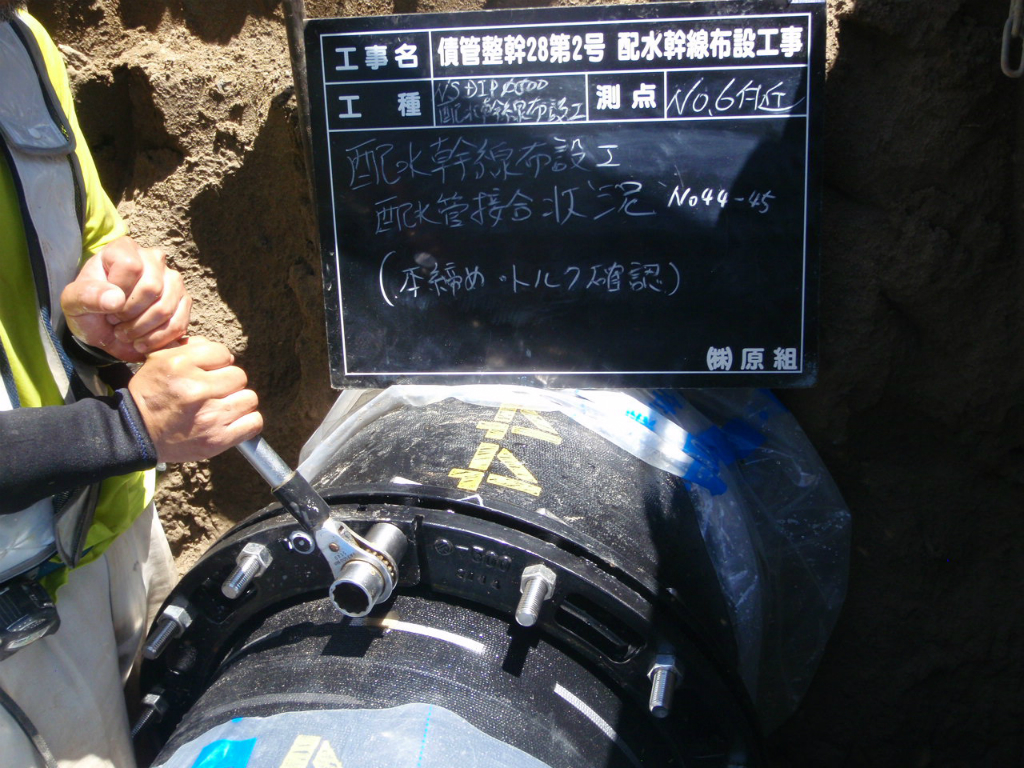 工事名 債管整幹28第2号 配水幹線布設工事
工種 NS DIP φ500 測点 No.6付近
配水幹線布設工
配水幹線布設工
配水管接合状況 No44-45
(本締め・トルク確認)
㈱原組
44